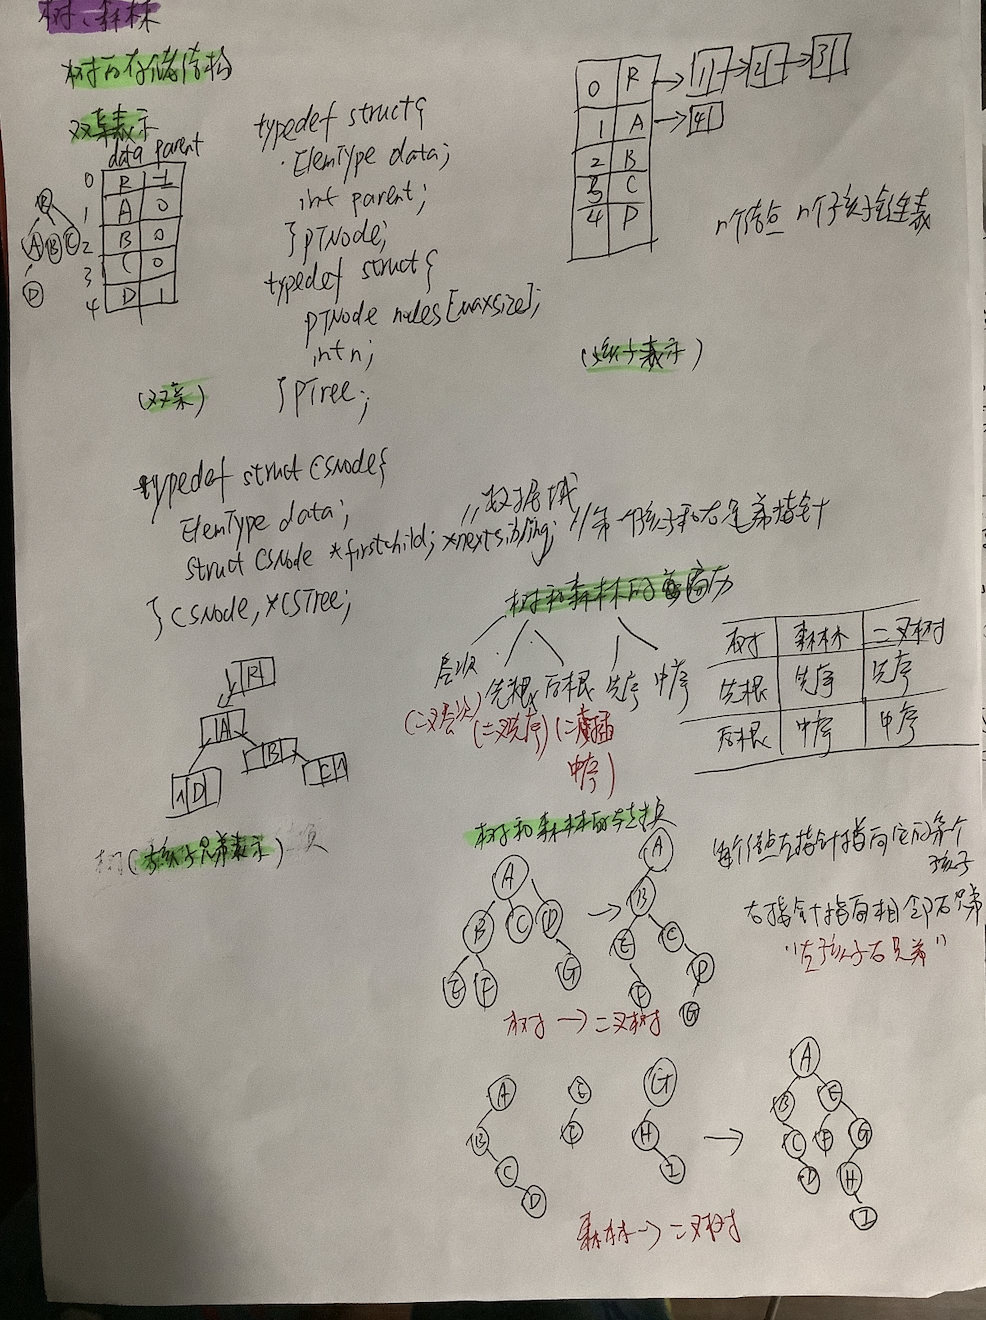 树、森林
树的存储结构
双亲表示
data parent
0 R -1
1 A 0
2 B 0
3 C 0
4 D 1
R
A B C
D
(双亲)
typedef struct{
ElemType data;
int parent;
}PTNode;
typedef struct{
PTNode nodes[maxsize];
int n;
}PTree;
0 R → 1 → 2 → 3
1 A → 4
2 B
3 C
4 D
n个结点 n个孩子链表
(孩子表示)
typedef struct CSNode{
ElemType data; //数据域
struct CSNode *firstchild, *nextsibling; //第一个孩子和右兄弟指针
}CSNode, *CSTree;
R
A
D B C
(孩子兄弟表示)
树和森林的遍历
层次 先根 后根 先序 中序
(二叉层次) (二叉先序) (二叉
中序)
树 森林 二叉树
先根 先序 先序
后根 中序 中序
树和森林的转换
A
B C D
E F G
→
A
B
E C
F D
G
树→二叉树
每个结点左指针指向它的第一个
孩子
右指针指向相邻右兄弟
"左孩子右兄弟"
A E G
B F H
C I
D
→
A
B E
C F G
D H
I
森林→二叉树